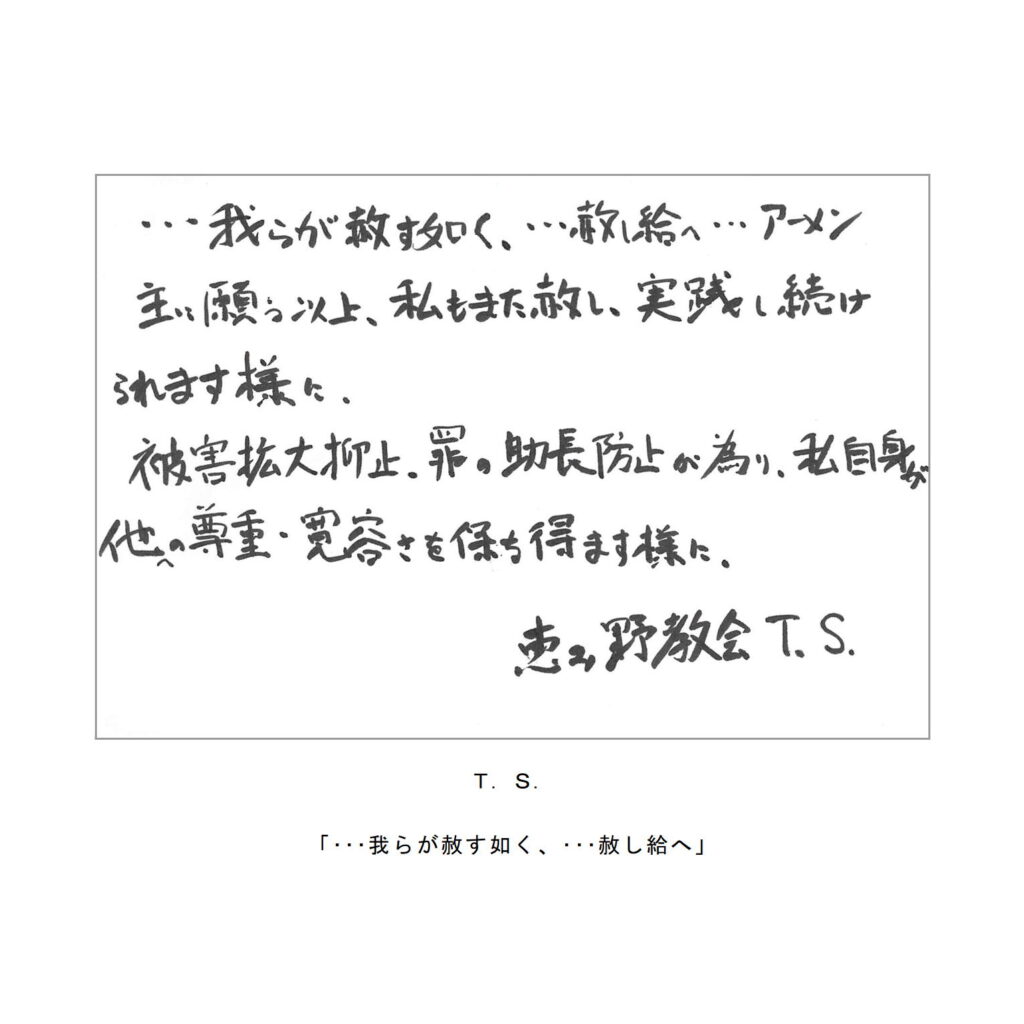 ・・・我らが赦す如く、・・・赦し給へ・・・アーメン
主に願う以上、私もまた赦し、実践し続け
られます様に。
被害拡大抑止、罪の助長防止が為り、私自身が
他への尊重・寛容さを保ち得ます様に。
恵み野教会 T. S.
T. S.
「・・・我らが赦す如く、・・・赦し給へ」